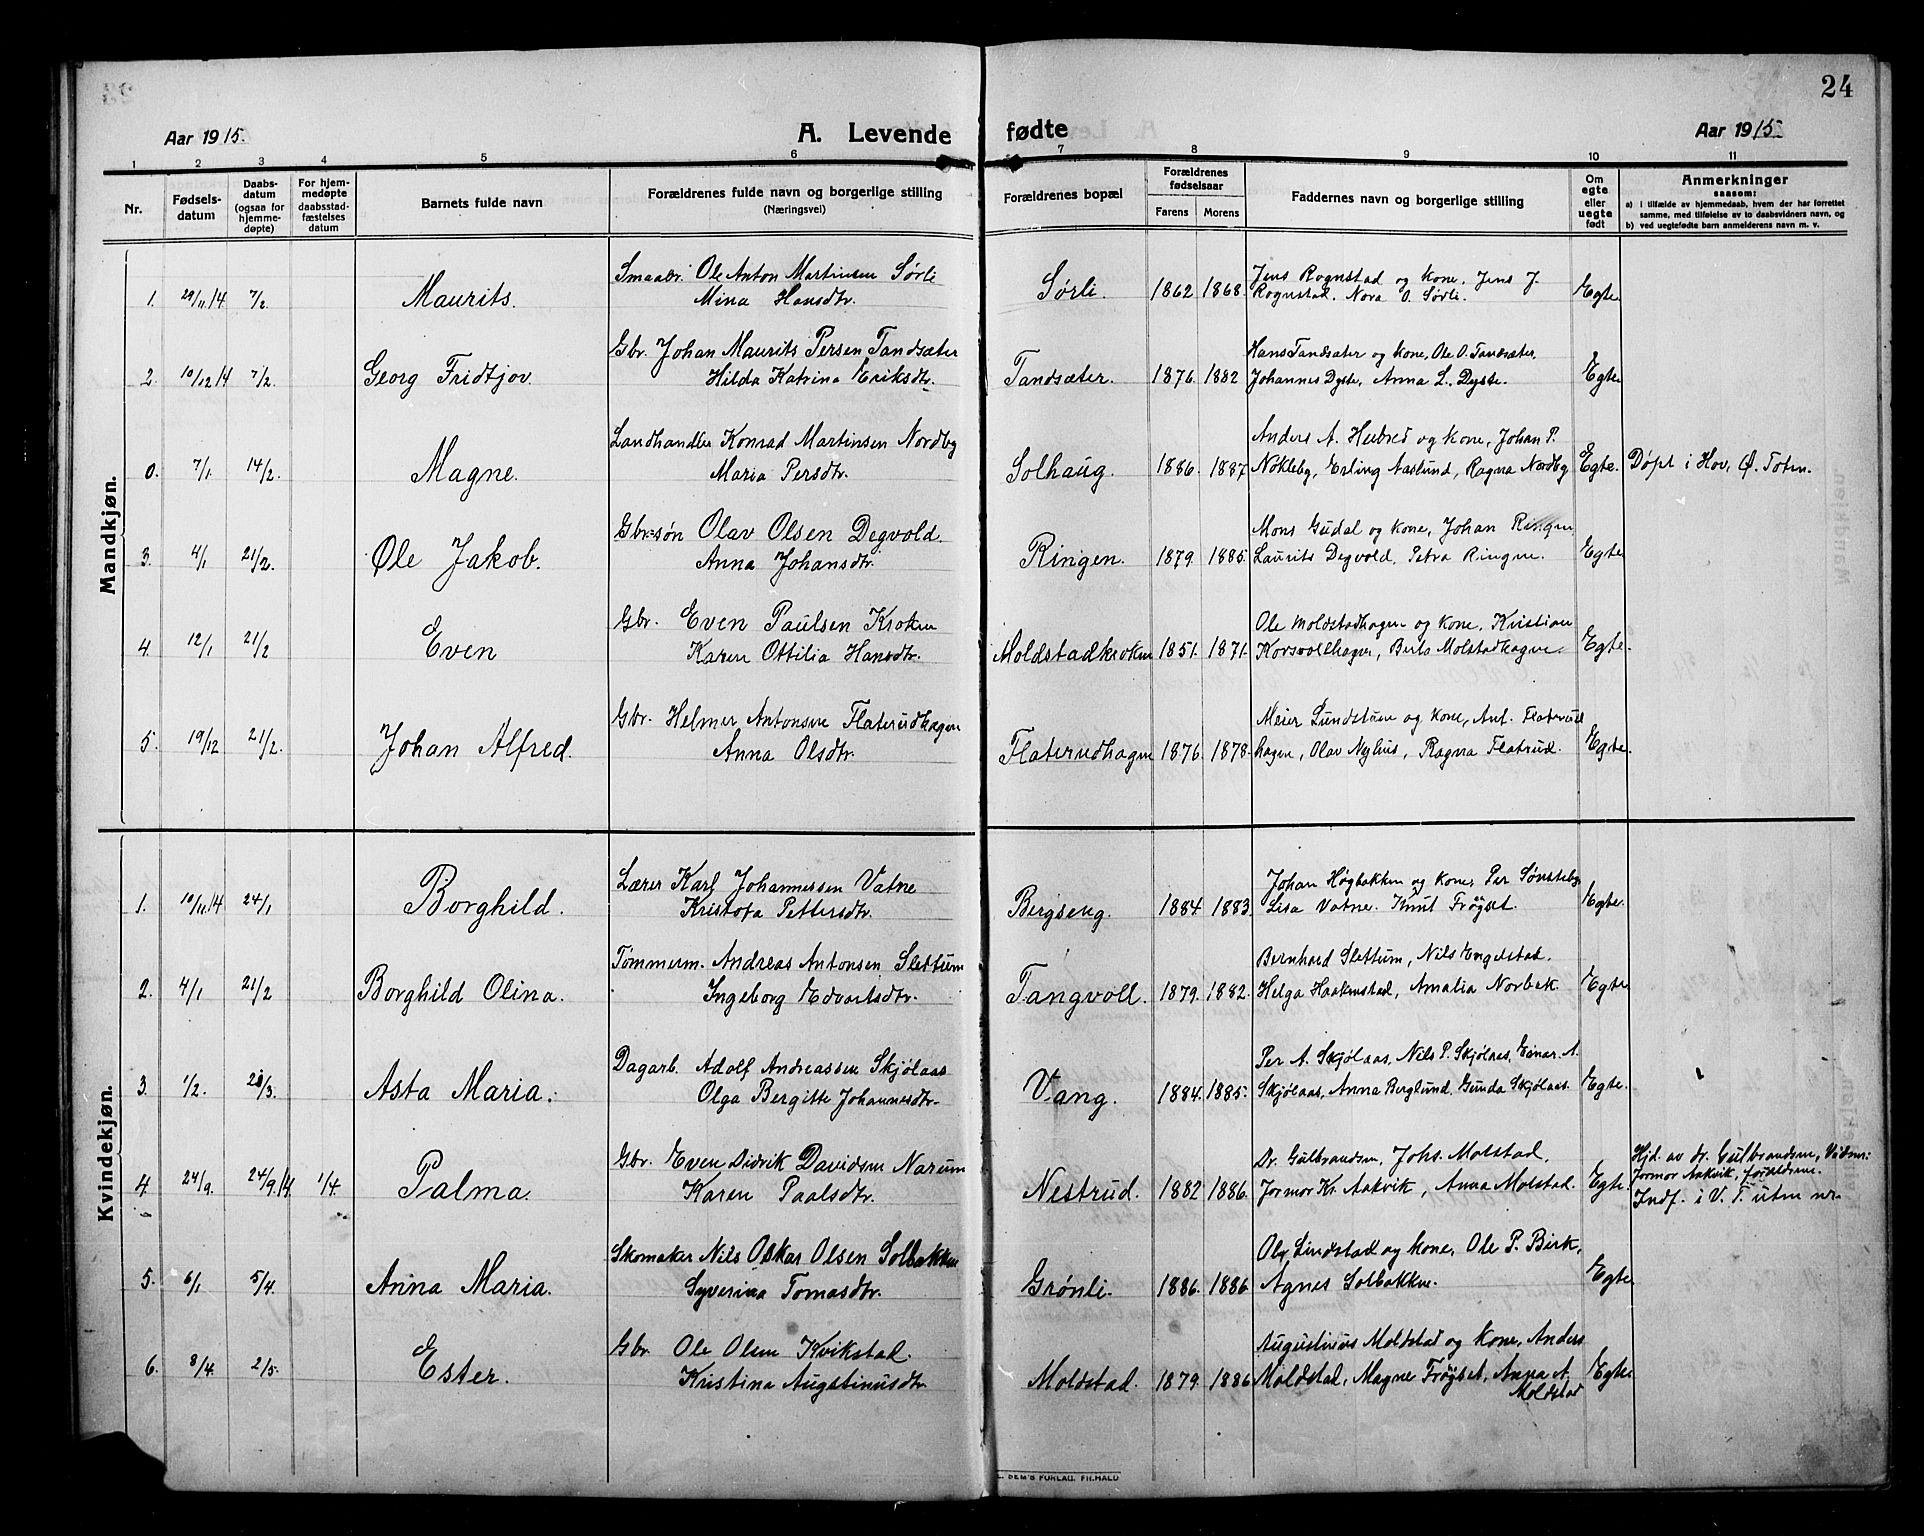 24
Aar 1915.
A. Levende fødte
Aar 1915
1 2 3 4 5 6 7 8 9 10 11
Nr.
Fødsels-
datum
Daabs-
datum
(ogsaa for
hjemme-
døpte)
For hjem-
medøpte
daabsstad-
fæstelses
datum
Barnets fulde navn
Forældrenes fulde navn og borgerlige stilling
(Næringsvei)
Forældrenes bopæl
Forældrenes
fødselsaar
Farens Morens
Faddernes navn og borgerlige stilling
Om
egte
eller
uegte
født
Anmerkninger
saasom:
a) i tilfælde av hjemmedaab, hvem der har forrettet
samme, med tilføielse av to daabsvidners navn, og
b) ved uegtefødte barn anmelderens navn m. v.
Mandkjøn.
Smaabr. Ole Anton Martinsen Sørli Jens Rognstad og kone, Jens J.
1. 29/11.14 7/2. Maurits. Mina Hansdtr. Sørli. 1862 1868 Rognstad. Nora O. Sørli. Egte
Gbr. Johan Maurits Persen Tandsæter Hans Tandsæter og kone, Ole O. Tandsæter,
2. 10/12.14 7/2. Georg Fridtjov. Hilda Katrina Eriksdtr. Tandsæter. 1876. 1882 Johannes Dyste, Anna L. Dyste. Egte
Landhandler Konrad Martinsen Nordby Anders A. Hubred og kone, Johan P.
0. 7/1. 14/2. Magne. Maria Persdtr. Solhaug. 1886. 1887 Nøkleby, Erling Aaslund, Ragna Nordby Egte. Døpt i Hov, Ø. Toten.
Gbr.søn Olav Olsen Degvold. Mons Gudal og kone, Johan Ringen,
3. 4/1 21/2. Ole Jakob. Anna Johansdtr. Ringen. 1879. 1885. Laurits Degvold, Petra Ringen. Egte
Gbr. Even Paulsen Kroken Ole Moldstadhagen og kone, Kristian
4. 12/1 21/2 Even Karen Ottilia Hansdtr. Moldstadkroken 1851. 1871. Korsvollhagen, Berte Molstadhagen. Egte.
Gbr. Helmer Antonsen Flaterudhagen Meier Lundstuen og kone, Ant. Flaterud
5. 19/12 21/2. Johan Alfred. Anna Olsdtr. Flaterudhagen 1876. 1878. hagen, Olav Nyhus, Ragna Flatrud. Egte.
Kvindekjøn.
Lærer Karl Johannessen Vatne Johan Høgbakken og kone, Per Sønsteby
1. 10/11.14 24/1 Borghild. Kristofa Pettersdtr. Bergseng. 1884. 1883. Lisa Vatne. Knut Frøyset. Egte.
Tømmerm. Andreas Antonsen Slettum Bernhard Slettum, Nils Engelstad.
2. 4/1 21/2 Borghild Olina. Ingeborg Edvartsdtr. Tangvoll. 1879. 1882. Helga Haakenstad, Amalia Norbek. Egte
Dagarb. Adolf Andreassen Skjølaas Per A. Skjølaas, Nils P. Skjølaas, Einar A.
3. 1/2. 28/3. Asta Maria. Olga Bergitte Johannesdtr. Vang. 1884. 1885. Skjølaas, Anna Berglund. Gunda Skjølaas. Egte.
Gbr. Even Didrik Davidsen Narum Dr. Gulbrandsen, Johs. Molstad, Hjd. av dr. Gulbrandsen, Vidner:
4. 24/9. 24/9.14. 1/4. Palma. Karen Paalsdtr. Nestrud. 1882 1886. Jormor Kr. Aakvik, Anna Molstad. Egte. Jormor Aakvik, forældrene.
Indf. i V. T. uten nr.
Skomaker Nils Oskar Olsen Solbakken Ole Lindstad og kone, Ole P. Birk,
5. 6/1 5/4. Anna Maria. Syverina Tomasdtr. Grønli. 1886. 1886 Agnes Solbakken. Egte
Gbr Ole Olsen Kvikstad. Augustinus Moldstad og kone, Anders
6. 8/4. 2/5. Ester. Kristina Augstinusdtr. Moldstad. 1879. 1886 Moldstad, Magne Frøyset, Anna A. Egte
Moldstad